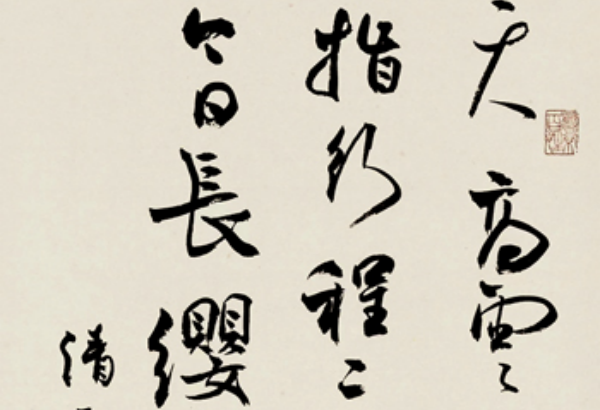 天高雲
指行程二
今日長纓
清